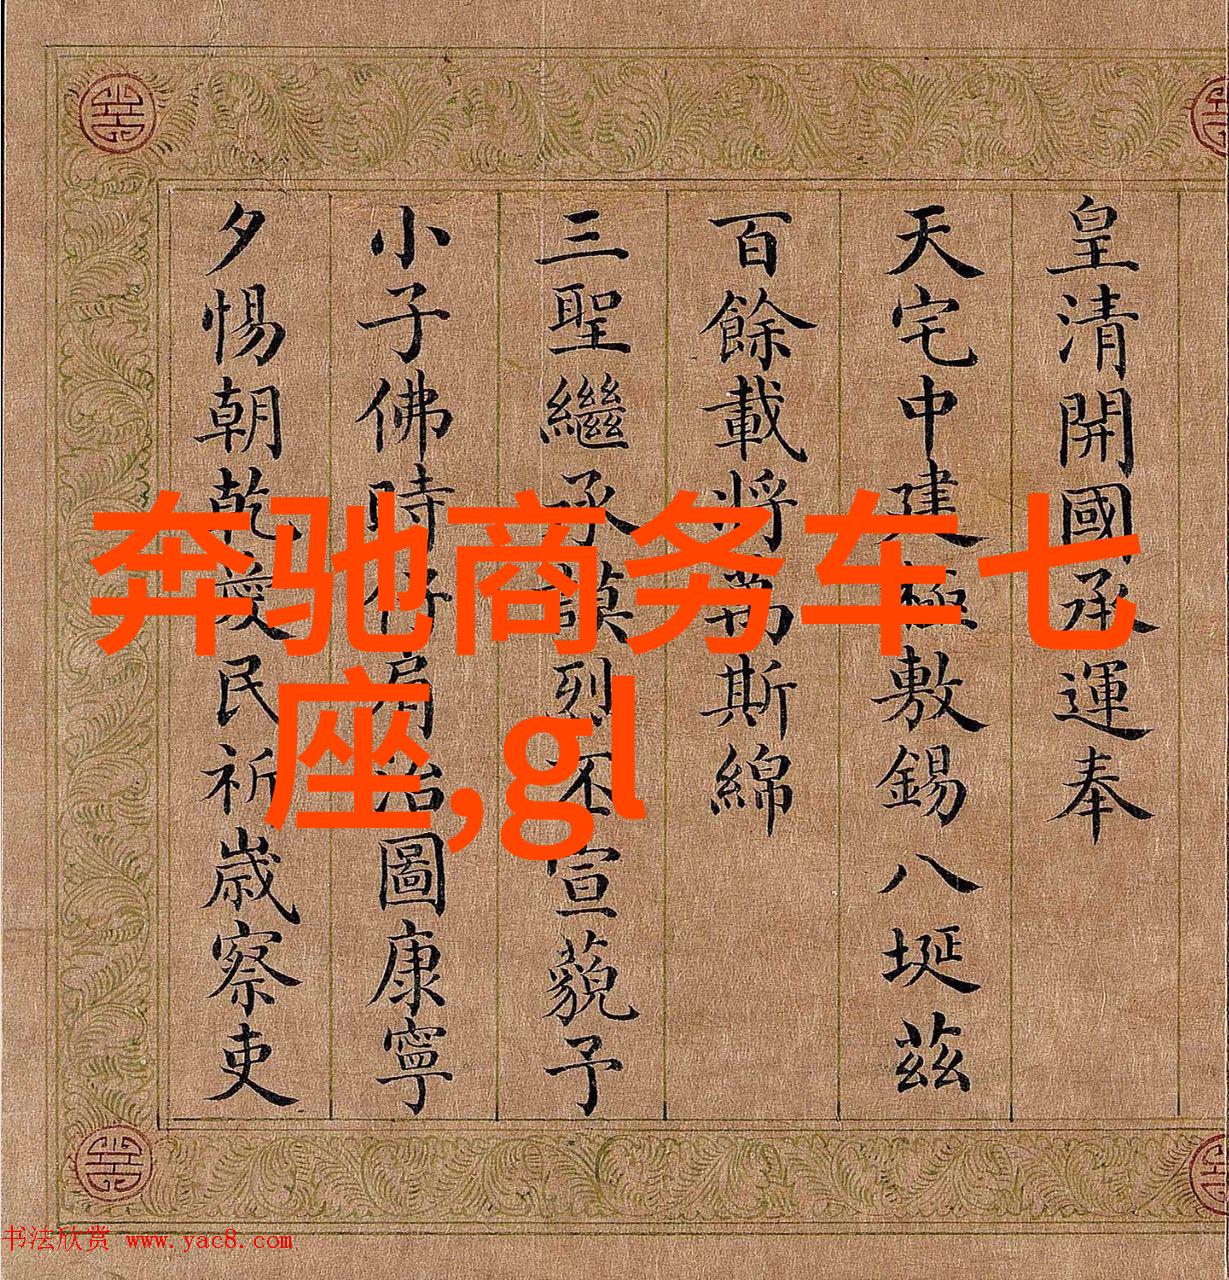 皇清開國承運奉
天宅中建極敷錫八埏茲
百餘載將萬斯綿
三聖繼承謨烈丕宣藐予
小子佛時仔肩治圖康寧
夕惕朝乾愛民祈歲察吏
奔驰商务车七
座,gl
书法欣赏 www.yac8.com